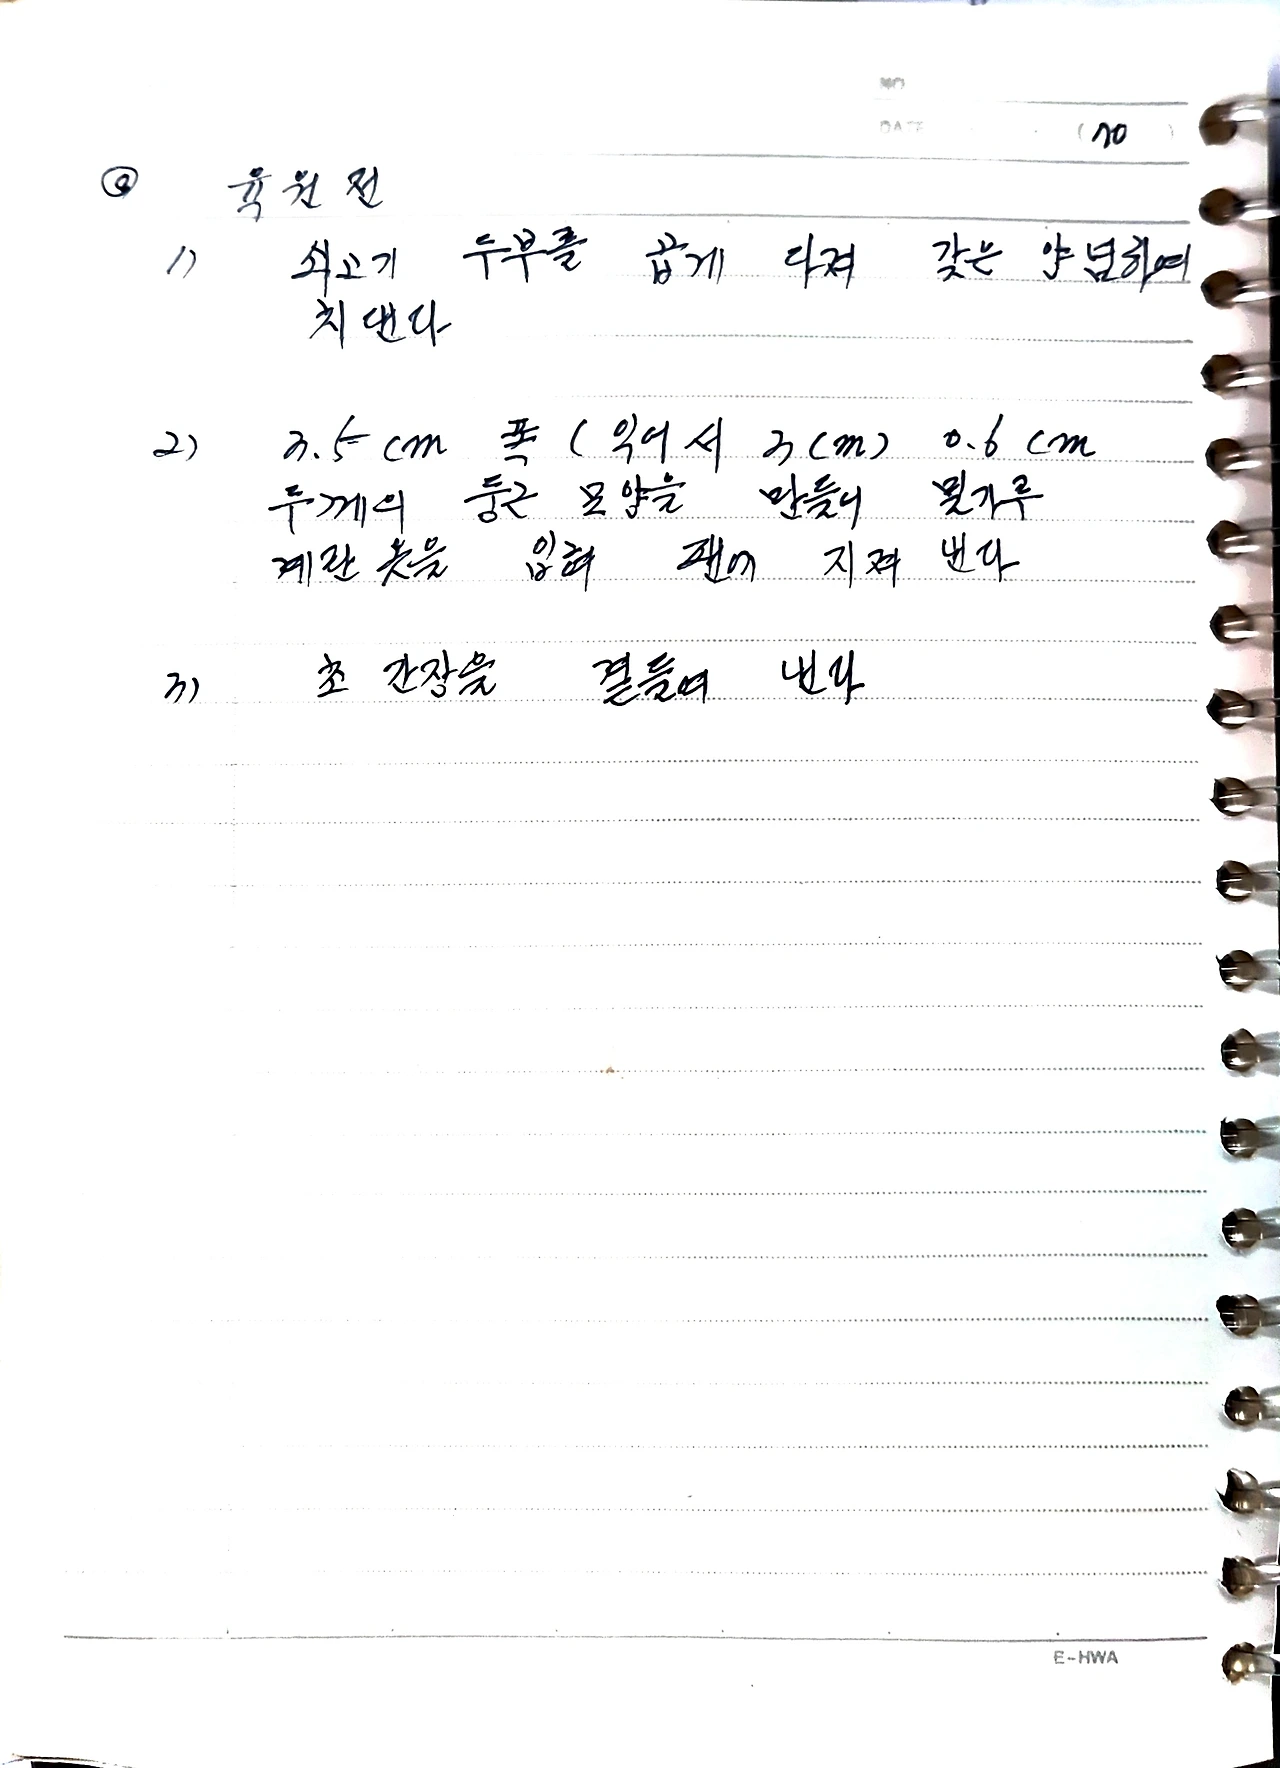 NO
DATE . . (70)
육원전
1) 쇠고기 두부를 곱게 다져 갖은 양념하여
치댄다
2) 3.5cm 폭 (익어서 3cm) 0.6cm
두께의 둥근 모양을 만들어 밀가루
계란 옷을 입혀 팬에 지져 낸다
3) 초간장을 곁들여 낸다
E-HWA